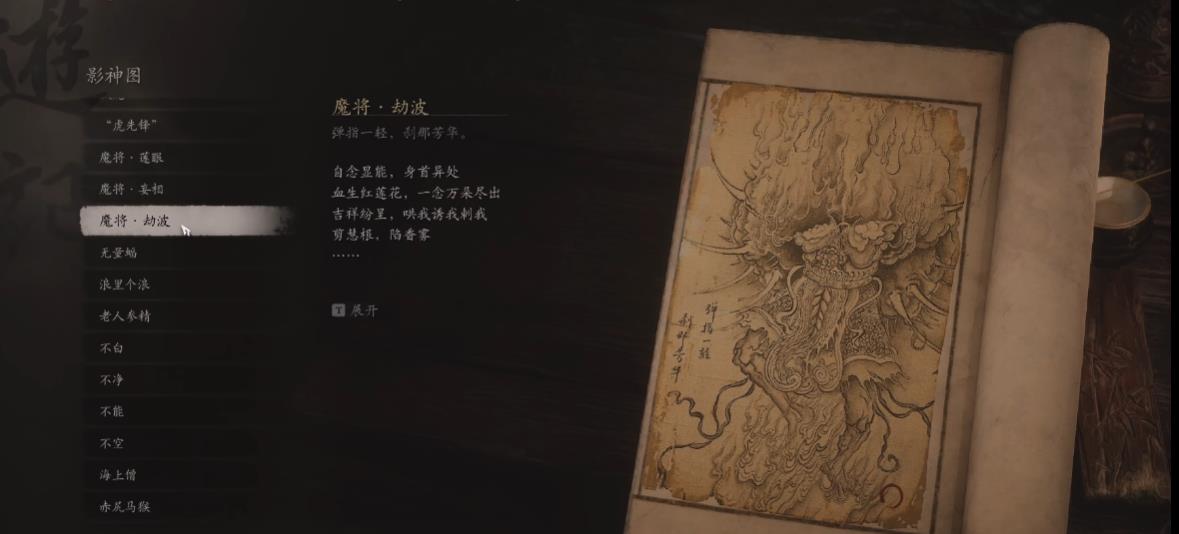 影神图
“虎先锋”
魔将·莲眼
魔将·妄相
魔将·劫波
无量蝠
浪里个浪
老人参精
不白
不净
不能
不空
海上僧
赤尻马猴
魔将·劫波
弹指一轻，刹那芳华。
自念显能，身首异处
血生红莲花，一念万朵尽出
吉祥纷呈，哄我诱我刺我
剪慧根，陷香雾
……
T 展开
弹指一轻
刹那芳华